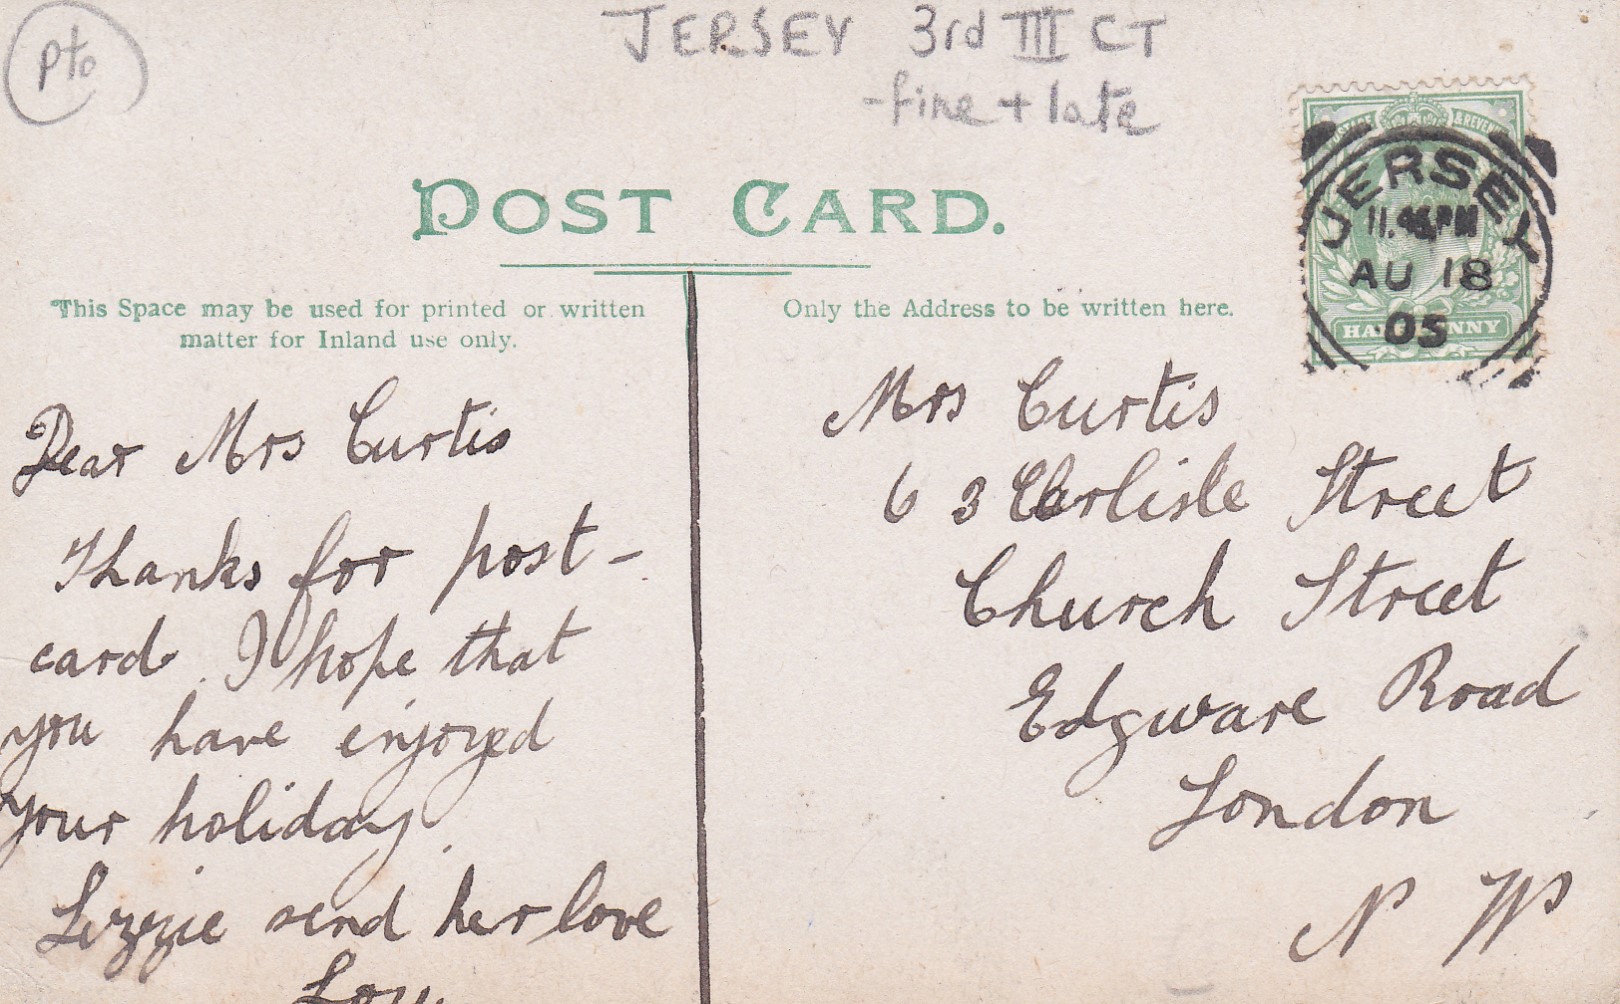 pto
JERSEY 3rd III CT
-fine + late
POST CARD.
This Space may be used for printed or written
matter for Inland use only.
Only the Address to be written here.
POSTAGE & REVENUE
JERSEY
PM
AU 18
05
HALFPENNY
Dear Mrs Curtis
Thanks for post-
card. I hope that
you have enjoyed
your holiday.
Lizzie send her love
Mrs Curtis
63 Carlisle Street
Church Street
Edgware Road
London
N W